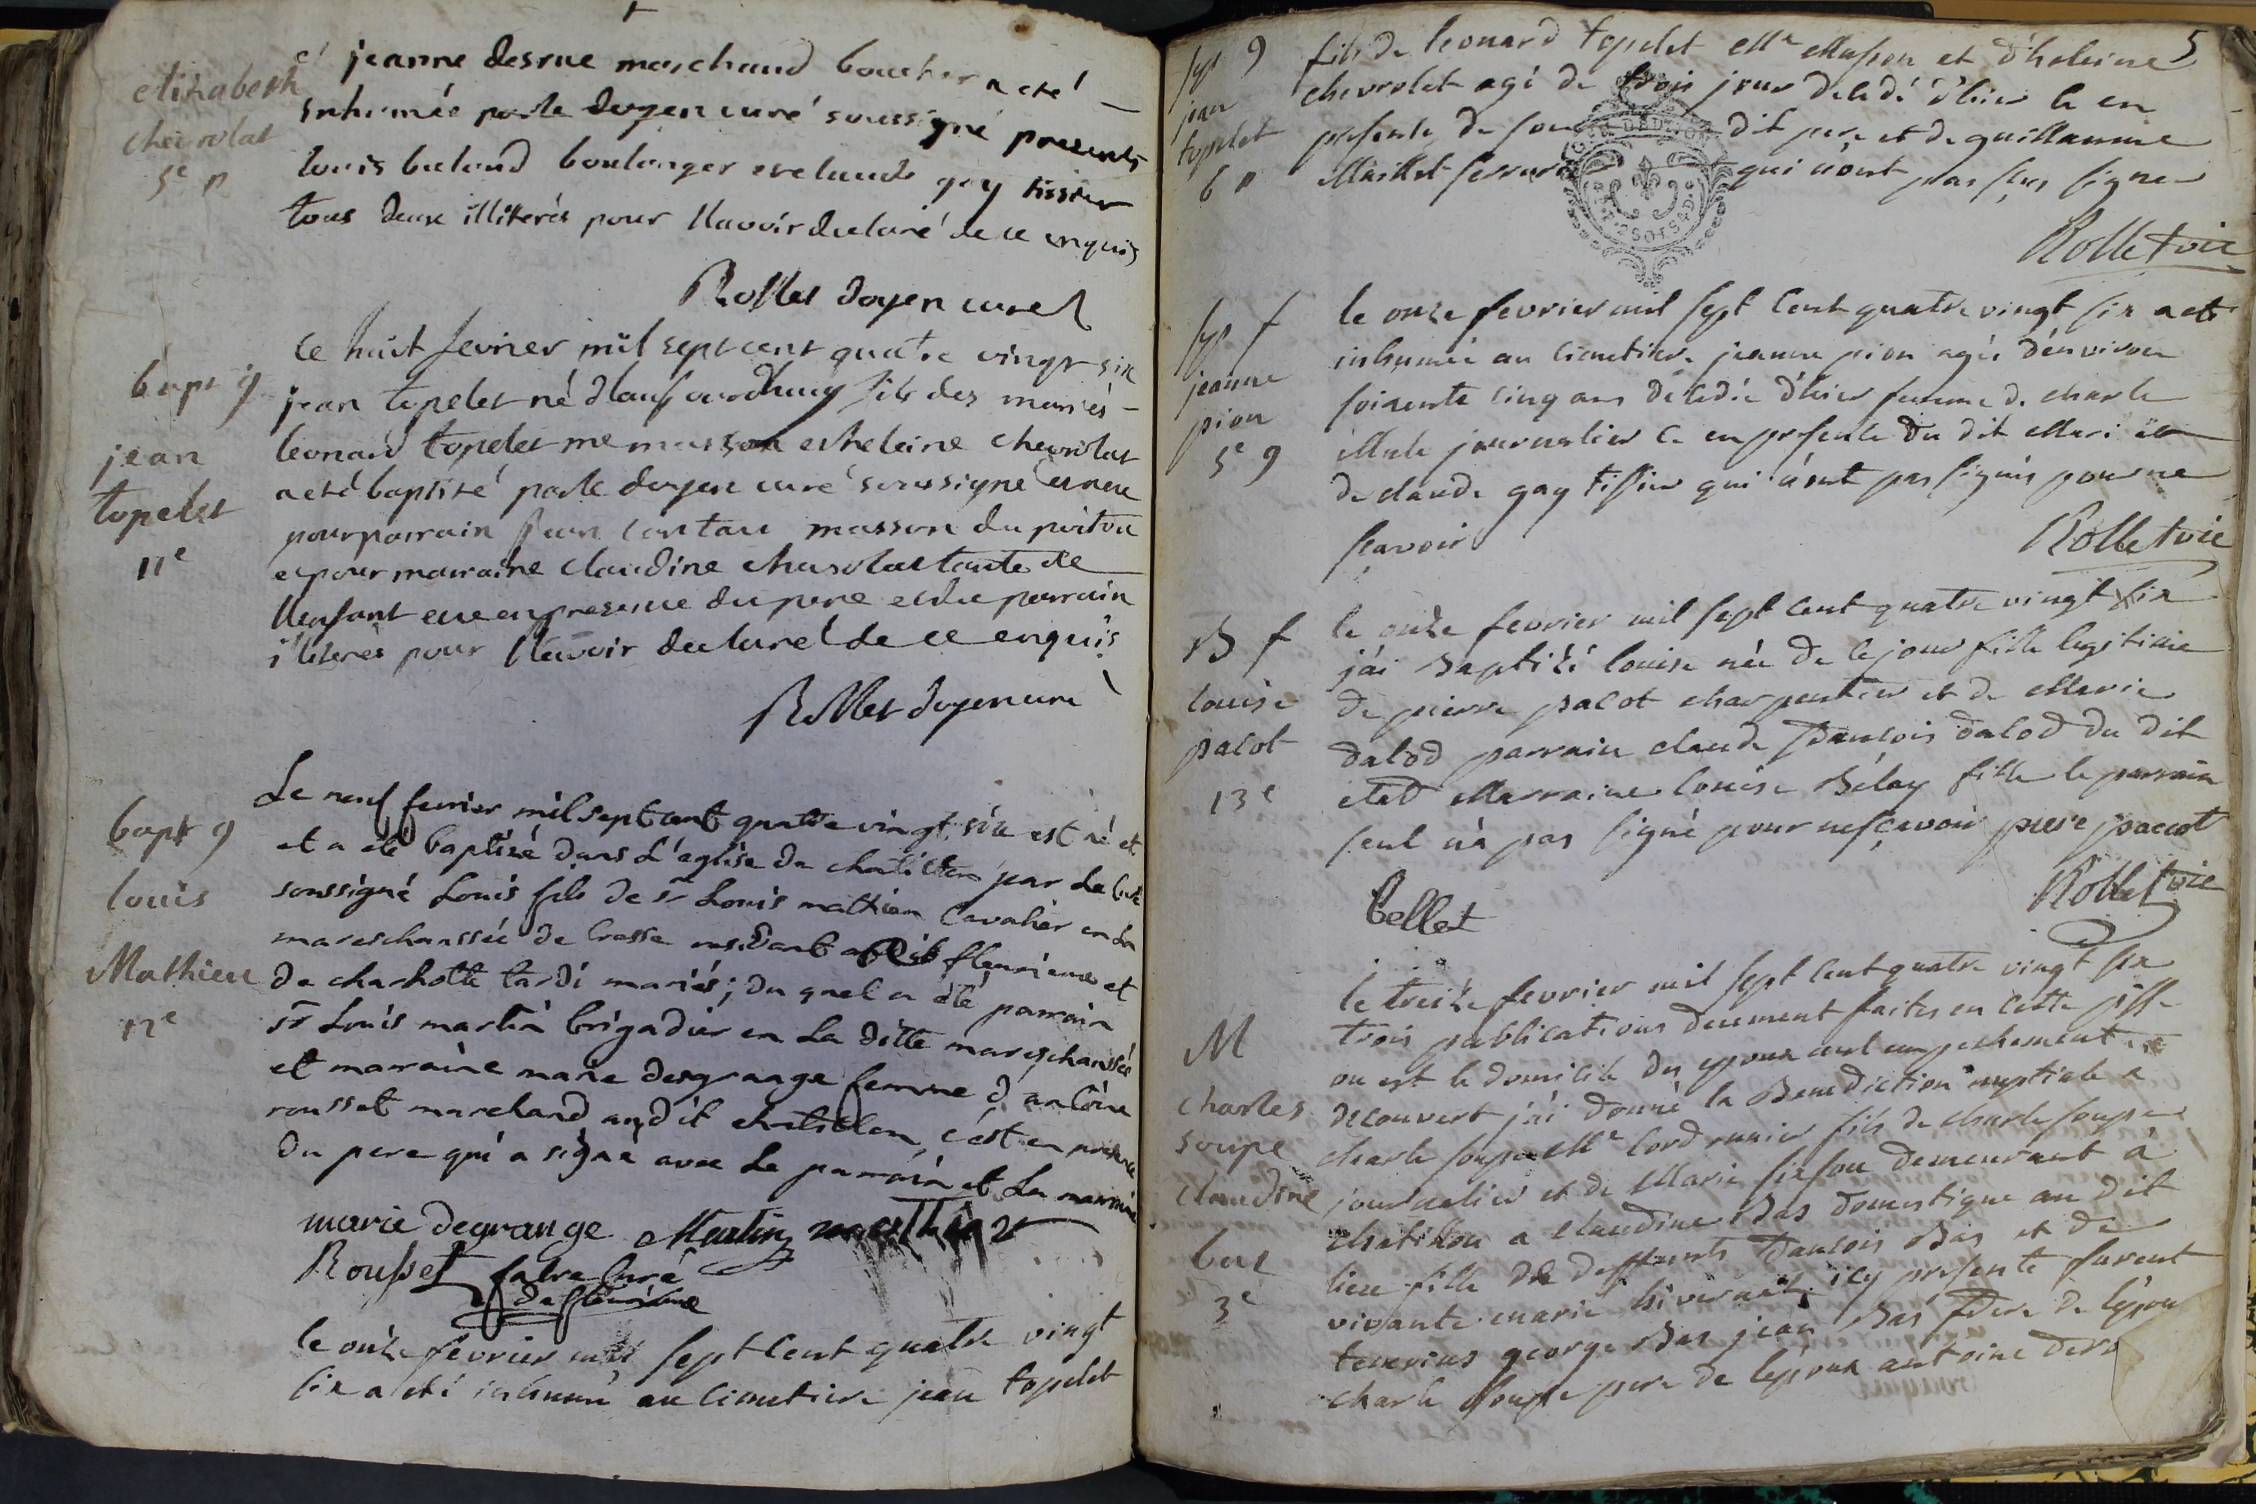 elizabeth
chevrolat
5e n
et jeanne desrue marchand boucher a eté
inhumée par le doyen curé soussigné presents
louis buland boulanger et claude gay tissier
tous deux illiterés pour l'avoir declaré de ce enquis
Rollet doyen curé
bapt g
jean
topelet
11e
Le huit fevrier mil sept cent quatre vingt six
jean topelet né d'aujourdhuy fils des mariés
leonard topelet me masson et heleine chevrolat
a eté baptisé par le doyen curé soussigné
pour parrain jean masson du poitou
et pour marraine claudine chevrolat tante de
l'enfant en presence du pere et du parrain
illiterés pour l'avoir declaré de ce enquis
Rollet doyen curé
bapt g
louis
Mathieu
12e
Le neuf fevrier mil sept cent quatre vingt six est né et
et a eté baptisé dans l'eglise de chatillon par le curé
soussigné Louis fils de sr Louis mathieu Cavalier en la
mareschaussée de Bresse residant fleurieux et
de charlotte tardi mariés; du quel a été parrain
sr Louis martin brigadier en la ditte mareschaussée
et marraine marie desgrange femme d'antoine
rousset marchand au dit chatillon, c'est en presence
du pere qui a signé avec le parrain et la marraine
marie degrange Martin mathieu
Rousset fabre curé
de fleurieux
le onze fevrier mil sept cent quatre vingt
six a eté inhumé au cimetiere jean topelet
5
sep g
jean
topelet
6 n
fils de leonard topelet Me Masson et d'heleine
chevrolat agé de trois jour decedé d'hier le en
presente de dit pere et de guillaume
Maillet qui n'ont pas sceu signer
Rollet vic
sep f
jeanne
pion
5e g
le onze fevrier mil sept cent quatre vingt six a eté
inhumée au cimetiere jeanne pion agée d'environ
soixente cinq ans decedée d'hier femme de charle
journalier le en presente du dit Mari et
de claude gay tissier qui n'ont pas signés pour ne
scavoir
Rollet vic
B f
louise
pacot
13e
le onze fevrier mil sept cent quatre vingt six
j'ai Baptizé louise née de ce jour fille legitime
de pierre pacot charpentier et de Marie
dalod parrain claude francois dalod du dit
etat Marraine louise Bélay fille le parrain
seul n'a pas signé pour ne sçavoir piere paccot
bellet
Rollet vic
M
charles
soupe
claudine
bas
3e
le treize fevrier mil sept cent quatre vingt six
trois publications deuement faites en cette psse
ou est le domicile des epoux nul empechement
decouvert j'ai donné la Benediction nuptiale a
charle soupe Me cordonnier fils de charle soupe
journalier et de Marie demeurant à
chatillon a claudine Bas domestique au dit
lieu fille de deffunts francois Bas et de
vivante marie icy presente furent
temoins george Bas jean Bas frere de lepouse
charle soupe pere de lepoux antoine